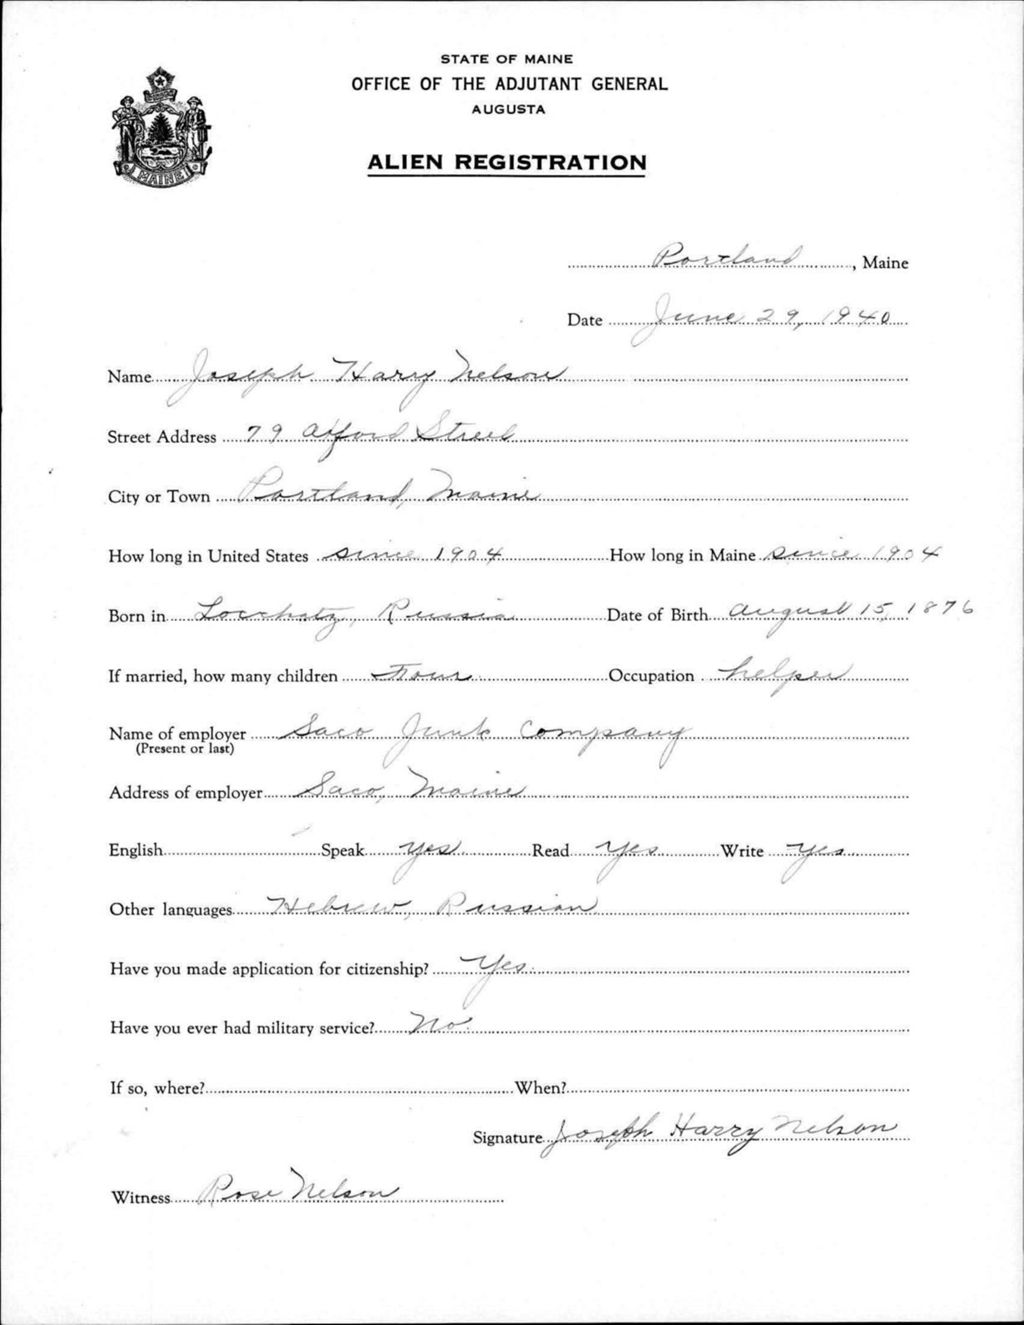 STATE OF MAINE
OFFICE OF THE ADJUTANT GENERAL
AUGUSTA
ALIEN REGISTRATION
MAINE
Portland, Maine
Date June 29, 1940
Name Joseph Harry Nelson
Street Address 79 Street
City or Town Portland, Maine
How long in United States since 1904 How long in Maine since 1904
Born in Russia Date of Birth August 15, 1876
If married, how many children Four Occupation helper
Name of employer Saco Junk Company
(Present or last)
Address of employer Saco, Maine
English Speak yes Read Yes Write Yes
Other languages Hebrew, Russian
Have you made application for citizenship? Yes
Have you ever had military service? No
If so, where? When?
Signature Joseph Harry Nelson
Witness Rose Nelson